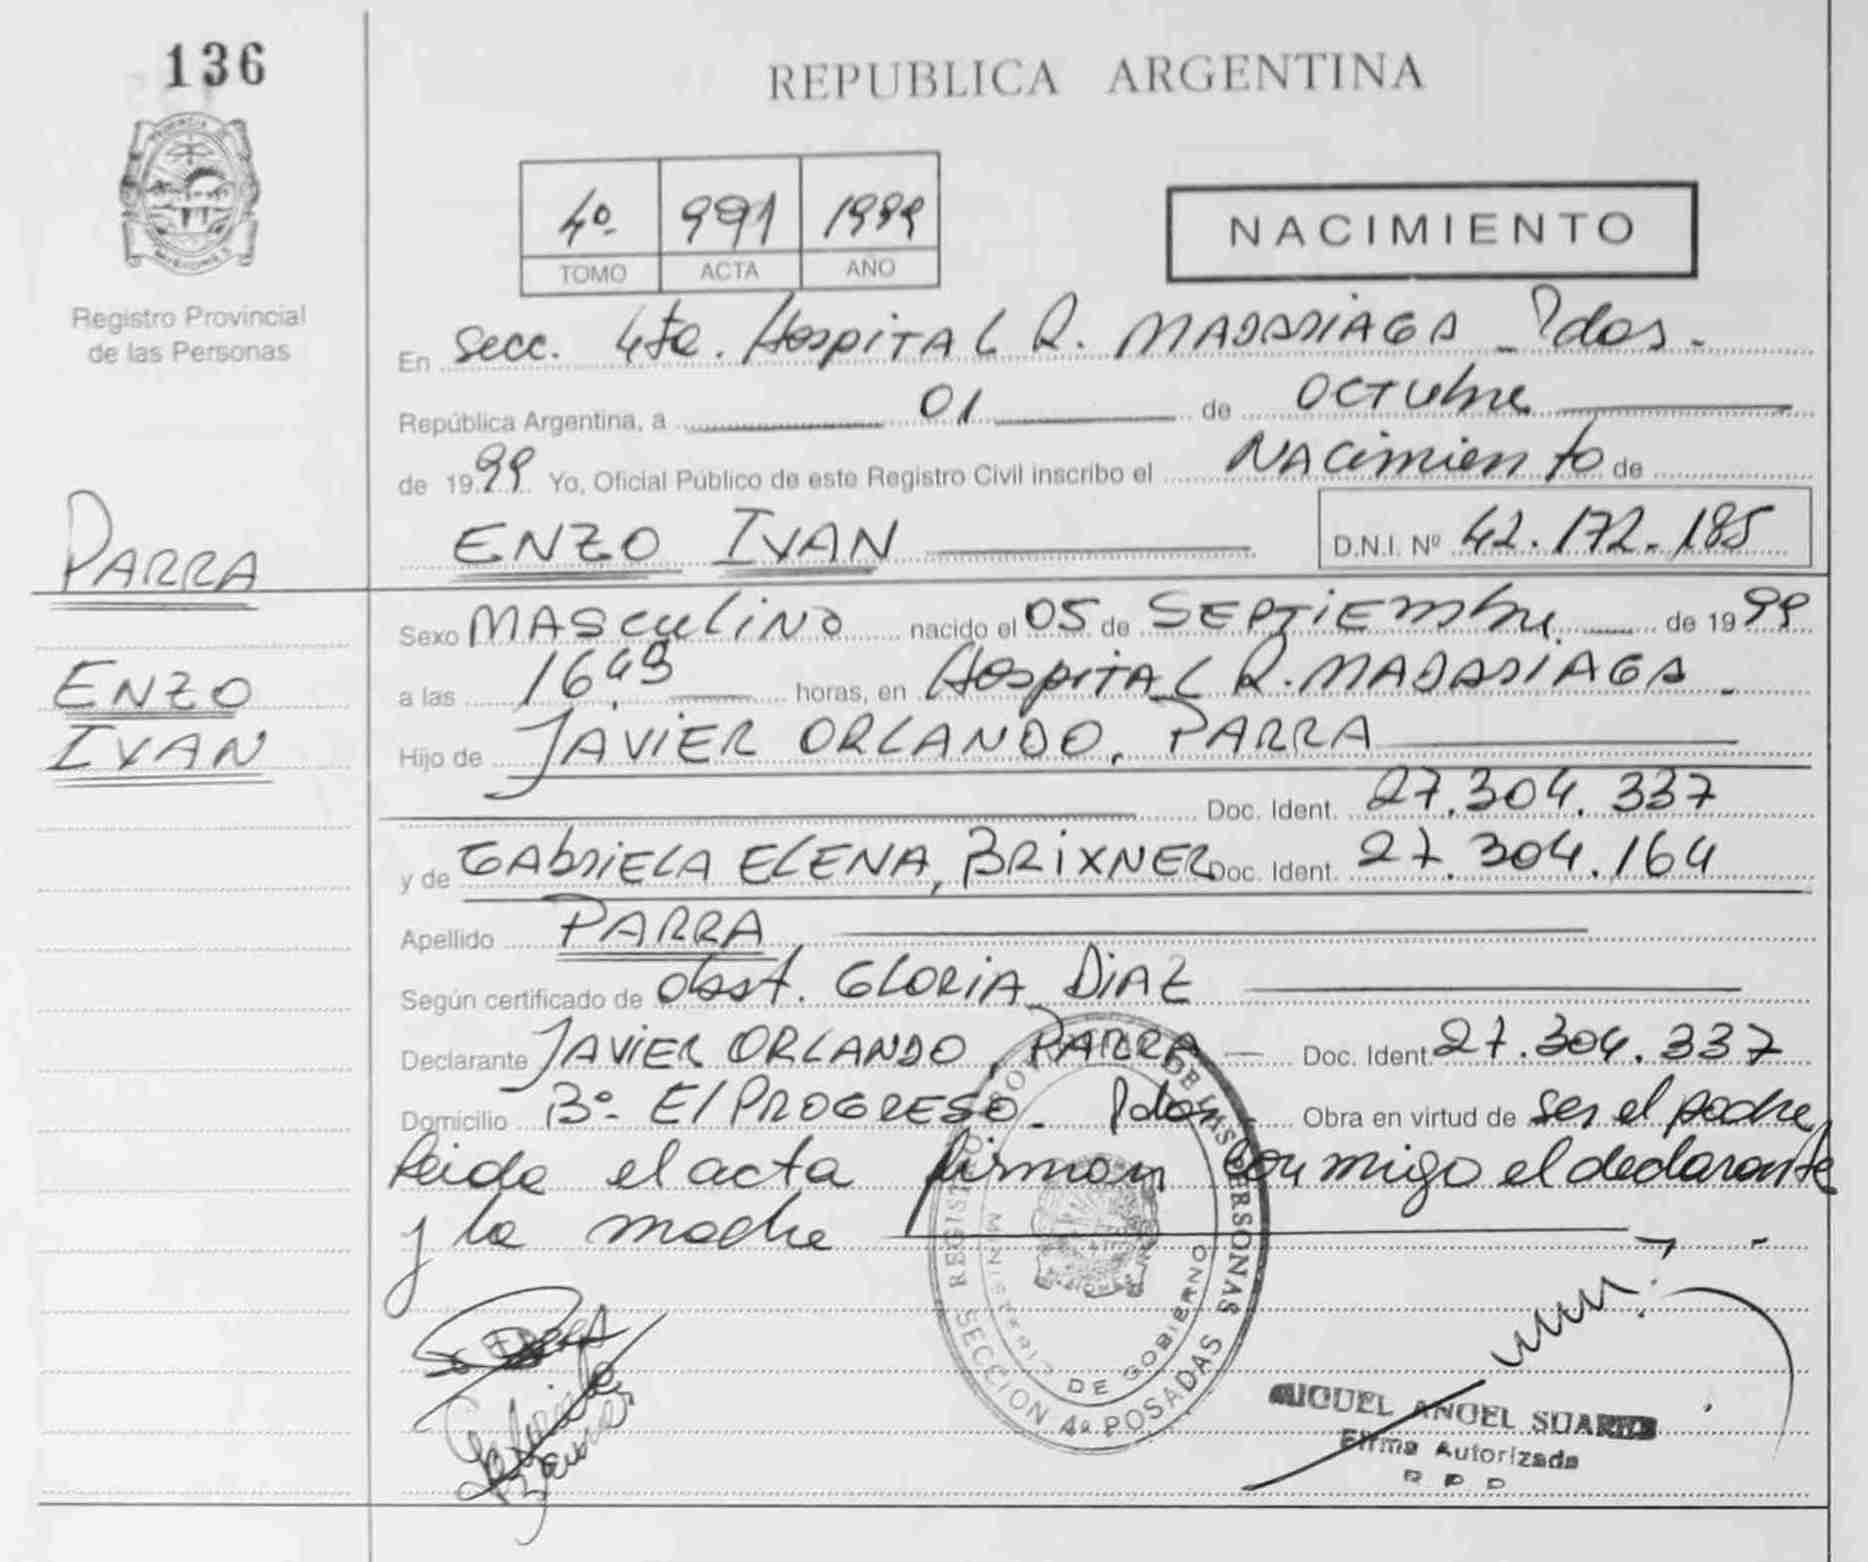 136
REPUBLICA ARGENTINA
4º 991 1999
TOMO ACTA AÑO
NACIMIENTO
Registro Provincial
de las Personas
En Secc. 4ta. Hospital R. MADARIAGA - Pdas.
República Argentina, a 01 de octubre
de 1999 Yo, Oficial Público de este Registro Civil inscribo el NAcimiento de
ENZO IVAN D.N.I. Nº 42.172.185
PARRA
ENZO
IVAN
Sexo MAScuLiNO nacido el 05 de SEPTiEmbre de 1999
a las 1643 horas, en HospiTAL R. MADARIAGA.
Hijo de JAViER ORLANDO, PARRA
Doc. Ident. 27.304.337
y de GAbriELA ELENA, BRiXNER Doc. Ident. 27.304.164
Apellido PARRA
Según certificado de obst. GLORiA DiAZ
Declarante JAViER ORLANDO, PARRA Doc. Ident. 27.304.337
Domicilio Bº El PROGRESO - Pdas Obra en virtud de ser el padre,
leida el acta firman conmigo el declarante
y la madre
REGISTRO DE LAS PERSONAS
MINISTERIO DE GOBIERNO
SECCION 4ª POSADAS
MIGUEL ANGEL SUAREZ
Firma Autorizada
R P P